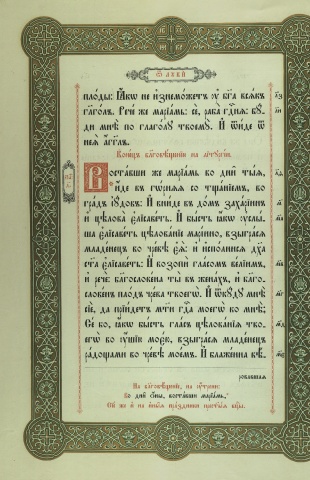 Ѿ лꙋкѝ
плоды: Ꙗ҆́кѡ не и҆знемо́жетъ ᲂу҆ бг҃а всѧ́къ
глаго́лъ. Рече́ же марїа́мь: сѐ, раба̀ гдⷭ҇нѧ: бꙋ́-
ди мнѣ̀ по глаго́лꙋ твоемꙋ̀. И҆ ѿи́де ѿ
неѧ̀ а҆́гг҃лъ.
Коне́цъ бл҃говѣ́щенїю на літꙋргі́и.
Воста́вши же марїа́мь во дни̑ ты̑ѧ,
и҆́де въ гѡ́рнѧѧ со тща́нїемъ, во
гра́дъ і҆ꙋ́довъ: И҆ вни́де въ до́мъ заха́рїинъ
и҆ цѣлова̀ є҆лїсаве́тъ. И҆ бы́сть ꙗ҆́кѡ ᲂу҆слы́-
ша є҆лїсаве́тъ цѣлова́нїе марі́ино, взыгра́сѧ
младе́нецъ во чре́вѣ є҆ѧ̀: и҆ и҆спо́лнисѧ дх҃а
ст҃а є҆лїсаве́тъ: И҆ возопѝ гла́сомъ ве́лїимъ,
и҆ речѐ: благослове́на ты̀ въ жена́хъ, и҆ бл҃го-
слове́нъ пло́дъ чре́ва твоегѡ̀. И҆ ѿкꙋ́дꙋ мнѣ̀
сїѐ, да прїи́детъ мт҃и гдⷭ҇а моегѡ̀ ко мнѣ̀;
Се́ бо, ꙗ҆́кѡ бы́сть гла́съ цѣлова́нїѧ тво-
егѡ̀ во ᲂу҆́шїю моє́ю, взыгра́сѧ младе́нецъ
ра́дощами во чре́вѣ мое́мъ. И҆ блаже́нна вѣ́-
ровавшаѧ
На бл҃говѣ́щенїе, на ᲂу҆́трени:
Во дни̑ ѡ҆́ны, воста́вши марїа́мь: